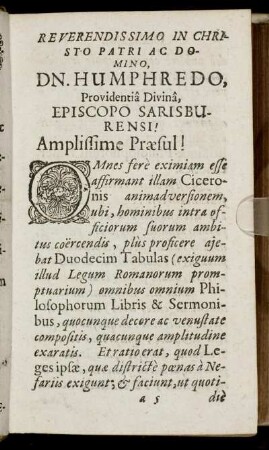 REVERENDISSIMO IN CHRI-
STO PATRI AC DO-
MINO,
DN. HUMPHREDO,
Providentiâ Divinâ,
EPISCOPO SARISBU-
RENSI!
Amplissime Præsul!
OMnes ferè eximiam esse
affirmant illam Cicero-
nis animadversionem,
ubi, hominibus intra of-
ficiorum suorum ambi-
tus coërcendis, plus proficere aje-
bat Duodecim Tabulas (exiguum
illud Legum Romanorum prom-
ptuarium) omnibus omnium Phi-
losophorum Libris & Sermoni-
bus, quocunque decore ac venustate
compositis, quacunque amplitudine
exaratis. Et ratio erat, quod Le-
ges ipsæ, quæ districtè pœnas à Ne-
fariis exigunt, & faciunt, ut quoti-
a 5
die